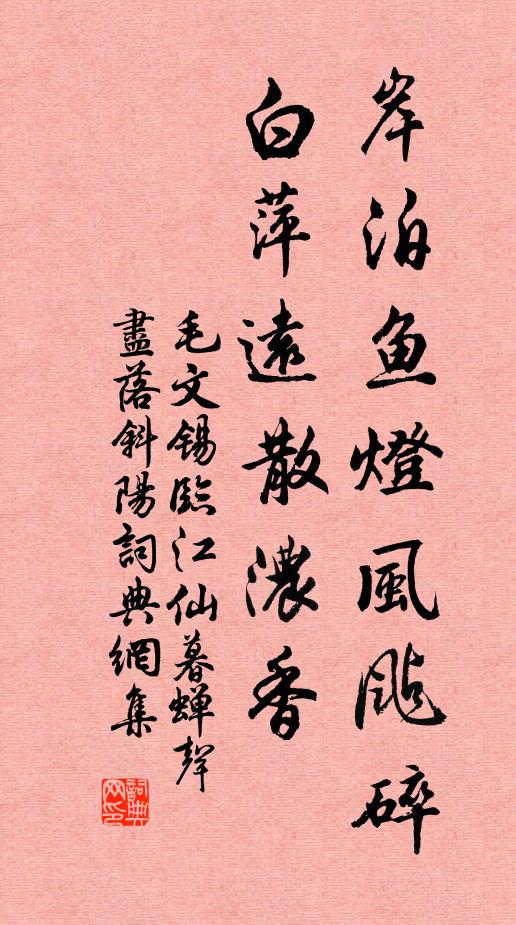 岸泊鱼燈風颭碎
白萍遠散濃香
毛文锡臨江仙暮蝉聲
盡落斜陽詞典網集
詞典网印